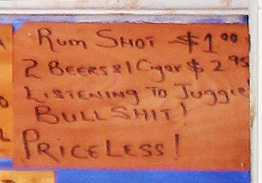 Rum Shot $1.00
2 Beers & 1 Cigar $2.95
Listening to Juggie
BULLSHIT!
PRICELESS!